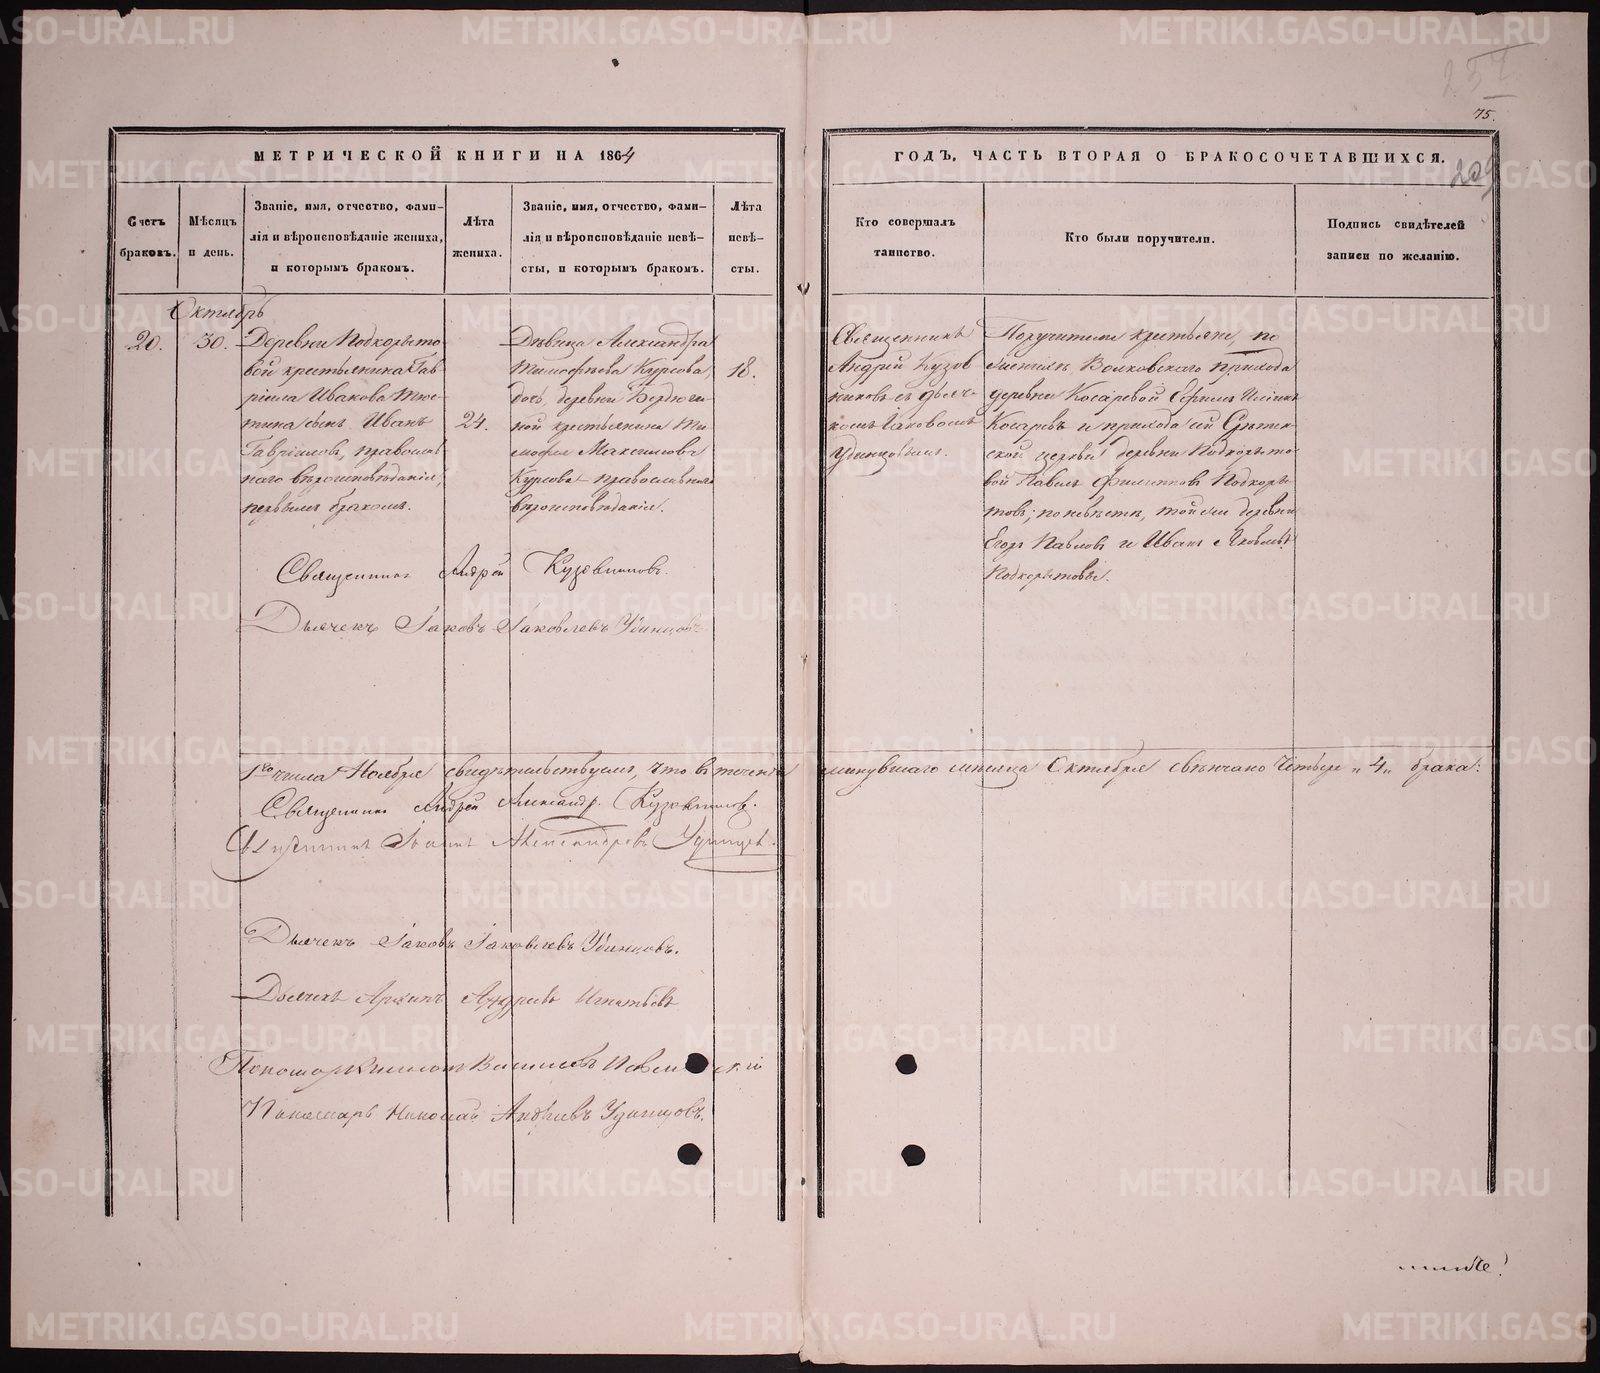 237
75.
209
МЕТРИЧЕСКОЙ КНИГИ НА 1864
ГОДЪ, ЧАСТЬ ВТОРАЯ О БРАКОСОЧЕТАВШИХСЯ.
Счетъ браковъ.
Мѣсяцъ и день.
Званіе, имя, отчество, фами-
лія и вѣроисповѣданіе жениха,
и которымъ бракомъ.
Лѣта жениха.
Званіе, имя, отчество, фами-
лія и вѣроисповѣданіе невѣ-
сты, и которымъ бракомъ.
Лѣта невѣ-
сты.
Кто совершалъ
таинство.
Кто были поручители.
Подпись свидѣтелей
записи по желанію.
Октябрь
20.
30.
Деревни Подкорыто
вой крестьянина Гав
ріила Ивакова
сынъ Иванъ
Гавріиловъ, православ
наго вѣроисповѣданія,
первымъ бракомъ.
24.
Дѣвица Александра
Тимофѣева Курсова,
дочь деревни
ной крестьянина Ти
мофея Максимова
Курсова православнаго
вѣроисповѣданія.
18.
Священникъ
Андрей Кузов
никовъ съ дьяч-
комъ Іаковомъ
Удинцовымъ.
Поручители крестьяне, по
женихѣ, Волковскаго прихода
деревни Косаревой Ефимъ
Косаревъ и прихода сей
ской церкви деревни Подкорыто
вой Павелъ Филипповъ Подкоры
товъ; по невѣстѣ, той же деревни
Егоръ Павловъ и Иванъ Яковлевъ
Подкорытовы.
Священникъ Андрей Кузовниковъ.
Дьячекъ Іаковъ Іаковлевъ Удинцовъ
1го числа Ноября свидѣтельствуемъ, что въ теченіи минувшаго мѣсяца Октября свѣнчано четыре „4„ брака:
Священникъ Андрей Александр. Кузовниковъ.
Священникъ Іоаннъ Александровъ Удинцевъ.
Дьячекъ Іаковъ Іаковлевъ Удинцовъ.
Дьячекъ Архипъ Андреевъ Игнатьевъ
Пономарь Василіевъ
Пономарь Николай Андреевъ Удинцовъ.
METRIKI.GASO-URAL.RU